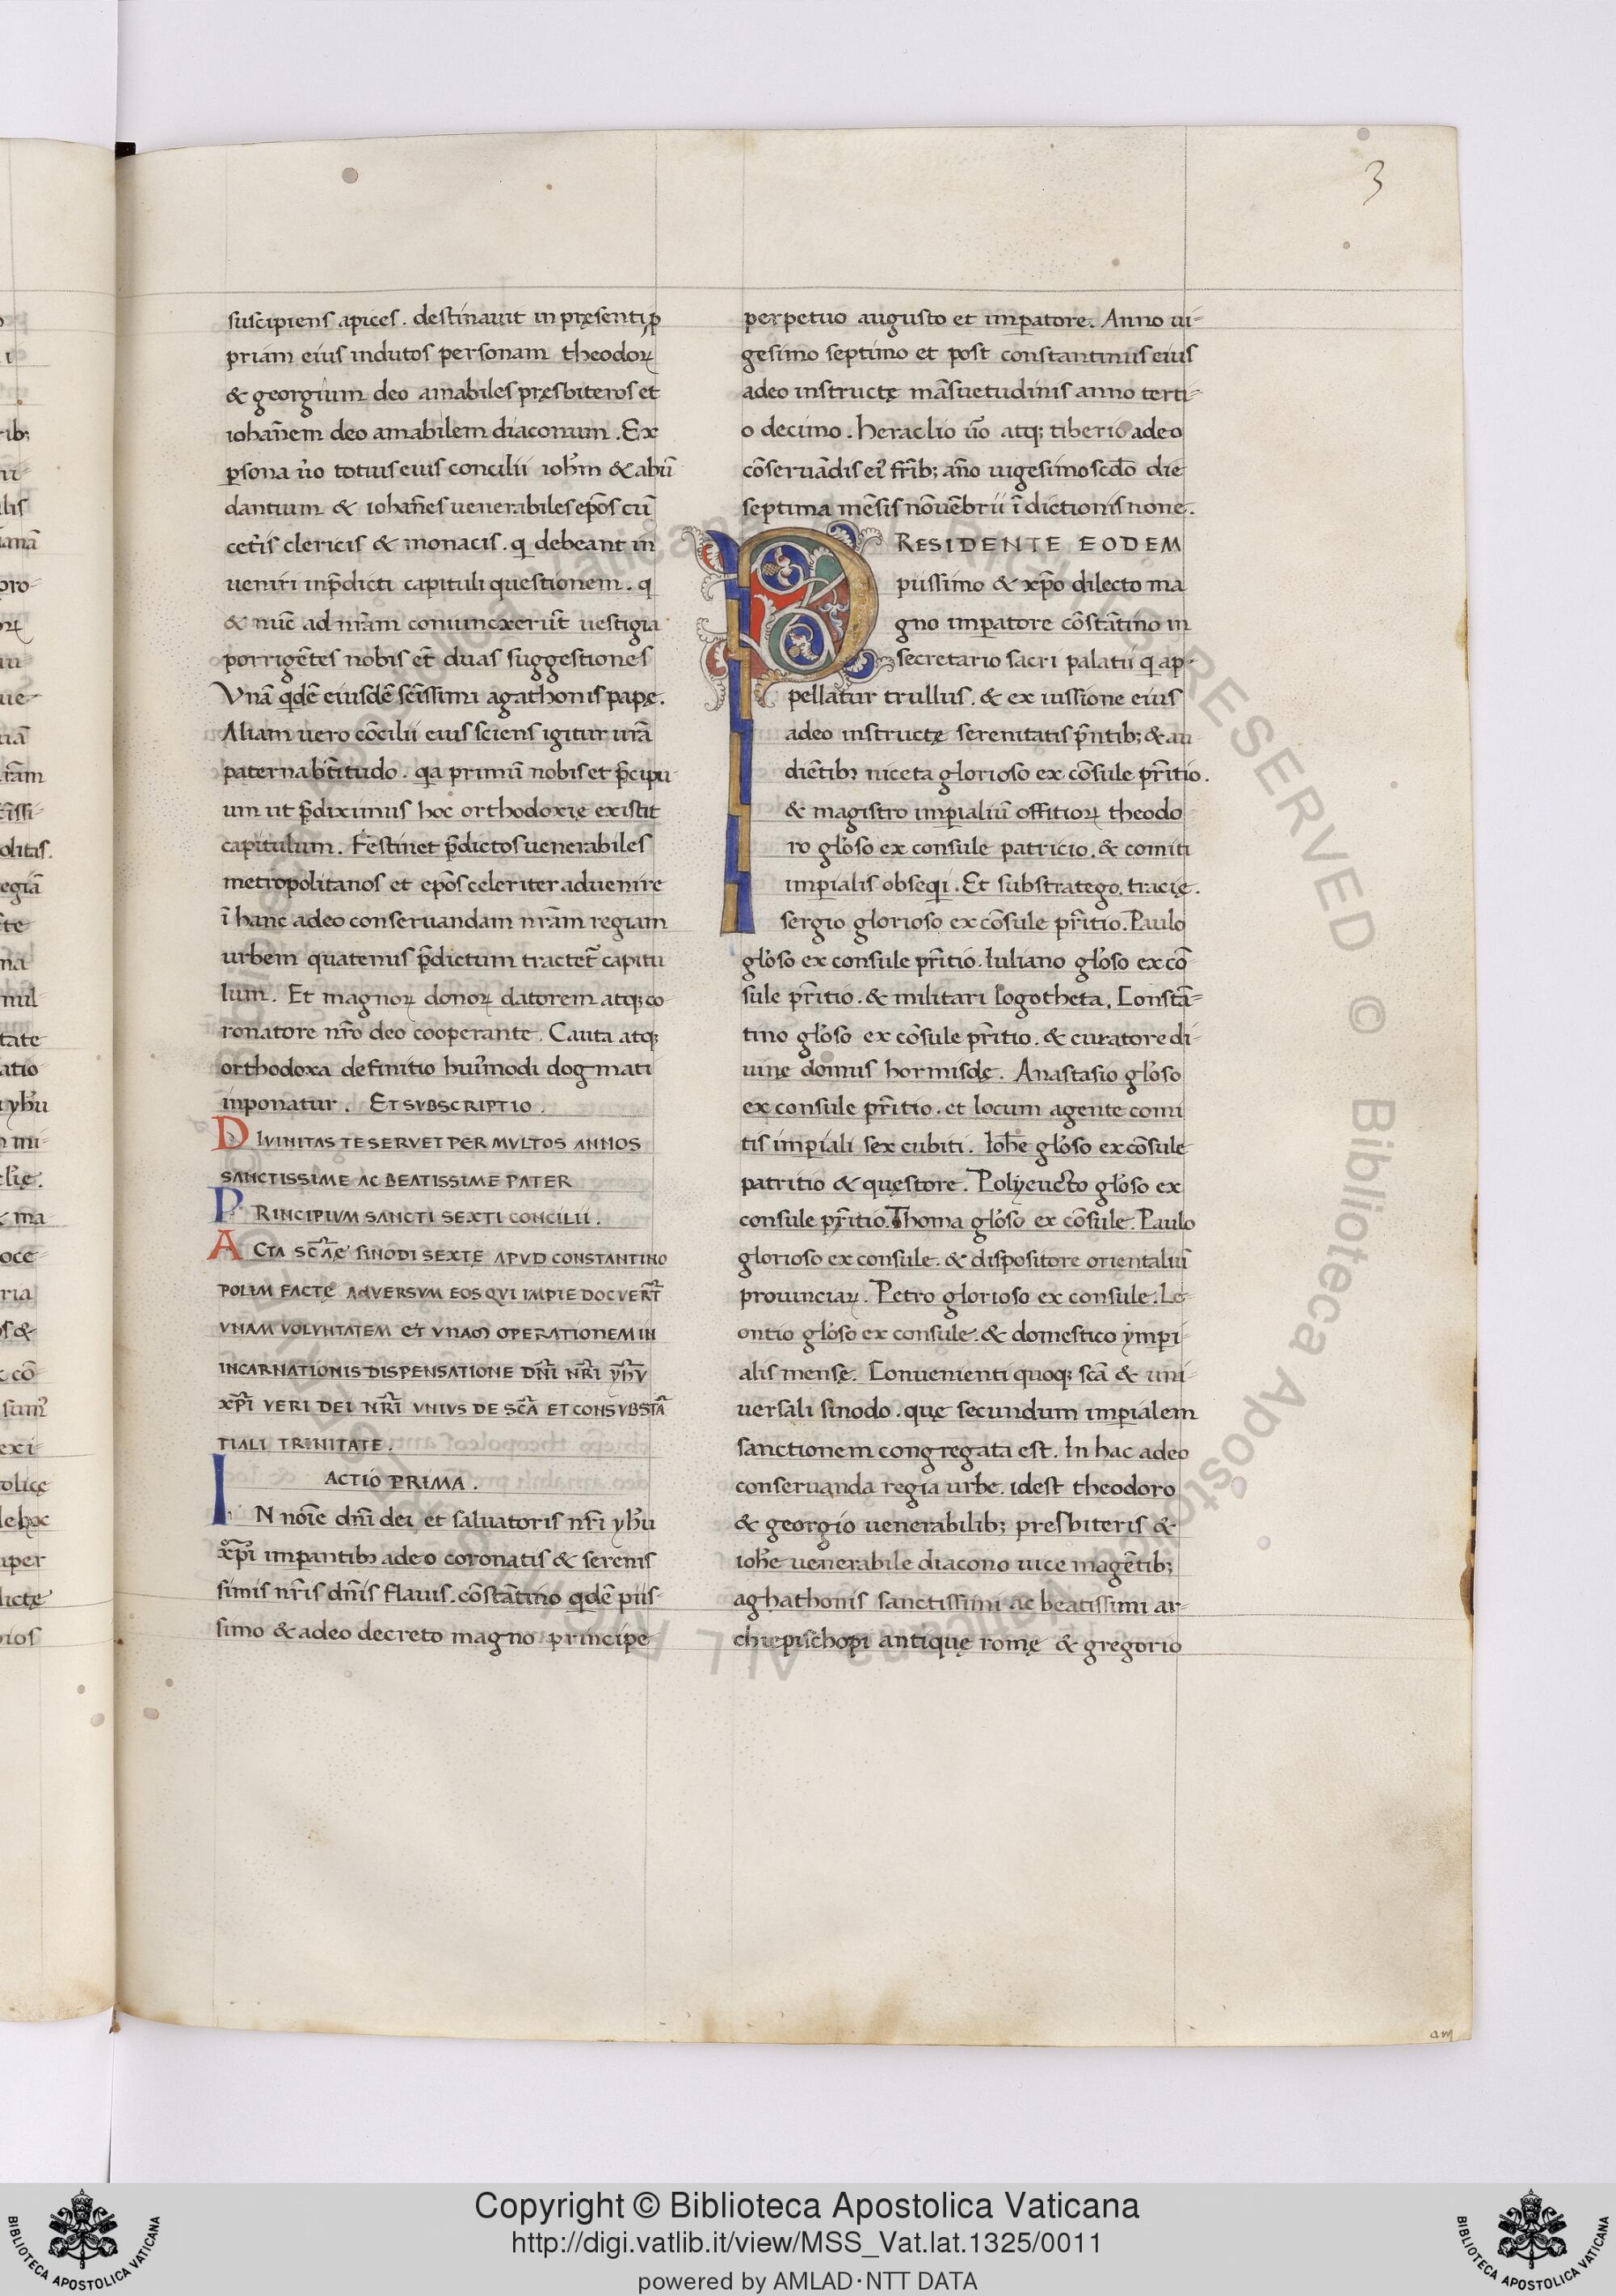 3
suscipiens apices. destinauit in pręsenti p̱
priam eius indutos personam theodoꝝ
& georgium deo amabiles pręsbiteros et
iohañem deo amabilem diaconum. Ex
ꝑsona ůo totius eius concilii ioh̃m & abũ
dantium & iohañes uenerabiles ep̃os cũ
cet̃is clericis & monacis. q debeant in
ueniri in p̃dicti capituli questionem. q
& nũc ad nr̃am coniuncxerũt uestigia
porrigẽtes nobis et̃ duas suggestiones
Vnã qdẽ eiusdẽ sc̃issimi agathonis papę.
Aliam uero cõcilii eius sciens igitur ur̃a
paterna bt̃itudo. qa primũ nobis et p̃cipu
um ut p̃diximus hoc orthodoxię existit
capitulum. Festinet p̃dictos uenerabiles
metropolitanos et ep̃os celeriter aduenire
ĩ hanc adeo conseruandam nr̃am regiam
urbem quatenus p̃dictum tractet̃ capitu
lum. Et magnoꝝ donoꝝ datorem atq; co-
ronatore nr̃o deo cooperante. Cauta atq;
orthodoxa definitio huĩmodi dogmati
inponatur. ET SVBSCRIPTIO.
DIVINITAS TE SERVET PER MVLTOS ANNOS
SANCTISSIME AC BEATISSIME PATER
PRINCIPIVM SANCTI SEXTI CONCILII.
ACTA SC̃AĘ SINODI SEXTĘ APVD CONSTANTINO
POLIM FACTĘ ADVERSVM EOS QVI IMPIE DOCVERT̃
VNAM VOLVNTATEM ET VNAM OPERATIONEM IN
INCARNATIONIS DISPENSATIONE DÑI NR̃I YH̃V
XP̃I VERI DEI NR̃I VNIVS DE SC̃A ET CONSVBSTÃ
TIALI TRINITATE.
ACTIO PRIMA.
IN noĩe dñi dei et saluatoris nr̃i yh̃u
xp̃i imꝑantibꝫ adeo coronatis & serenis
simis nr̃is dñis flauis. cõstãtino qdẽ piis-
simo & adeo decreto magno principe
perpetuo augusto et imꝑatore. Anno ui-
gesimo septimo et post constantinus eius
adeo instructę mãsuetudinis anno terti-
o decimo. heraclio ůo atq; tiberio adeo
cõseruãdis eĩ fr̃ib; año uigesimo scd̃o die
septima mẽsis nõuẽbrii ĩdictionis none.
PRESIDENTE EODEM
piissimo & xp̃o dilecto ma
gno imꝑatore cõstãtino in
secretario sacri palatii q ap-
pellatur trullus. & ex iussione eius
adeo instructę serenitatis p̃ntib; & au
diẽtibꝫ niceta glorioso ex cõsule pr̃itio.
& magistro imꝑialiũ offitioꝝ theodo
ro gl̃oso ex consule patricio. & comiti
imꝑialis obseqi. Et substratego. tracię.
sergio glorioso ex cõsule pr̃itio. Paulo
gl̃oso ex consule pr̃itio. Iuliano gl̃oso ex cõ
sule pr̃itio. & militari logotheta. Constã-
tino gl̃oso ex cõsule pr̃itio. & curatore di-
uinę domus hormisdę. Anastasio gl̃oso
ex consule pr̃itio. et locum agente comi
tis imꝑiali sex cubiti. Ioh̃e gl̃oso ex cõsule
patritio & quęstore. Polyeucto gl̃oso ex
consule pr̃itio. Thoma gl̃oso ex cõsule. Paulo
glorioso ex consule. & dispositore orientaliũ
prouinciaꝝ. Petro glorioso ex consule. Le-
ontio gl̃oso ex consule. & domestico ymꝑi-
alis mensę. Conuenienti quoq; sc̃a & uni-
uersali sinodo. quę secundum imꝑialem
sanctionem congregata est. In hac adeo
conseruanda regia urbe. idest theodoro
& georgio uenerabilib; presbiteris &
ioh̃e uenerabile diacono uice magẽtib;
aghathonis sanctissimi ac beatissimi ar-
chiepischopi antiquę romę & gregorio
Copyright © Biblioteca Apostolica Vaticana
http://digi.vatlib.it/view/MSS_Vat.lat.1325/0011
powered by AMLAD·NTT DATA
BIBLIOTECA APOSTOLICA VATICANA
BIBLIOTECA APOSTOLICA VATICANA